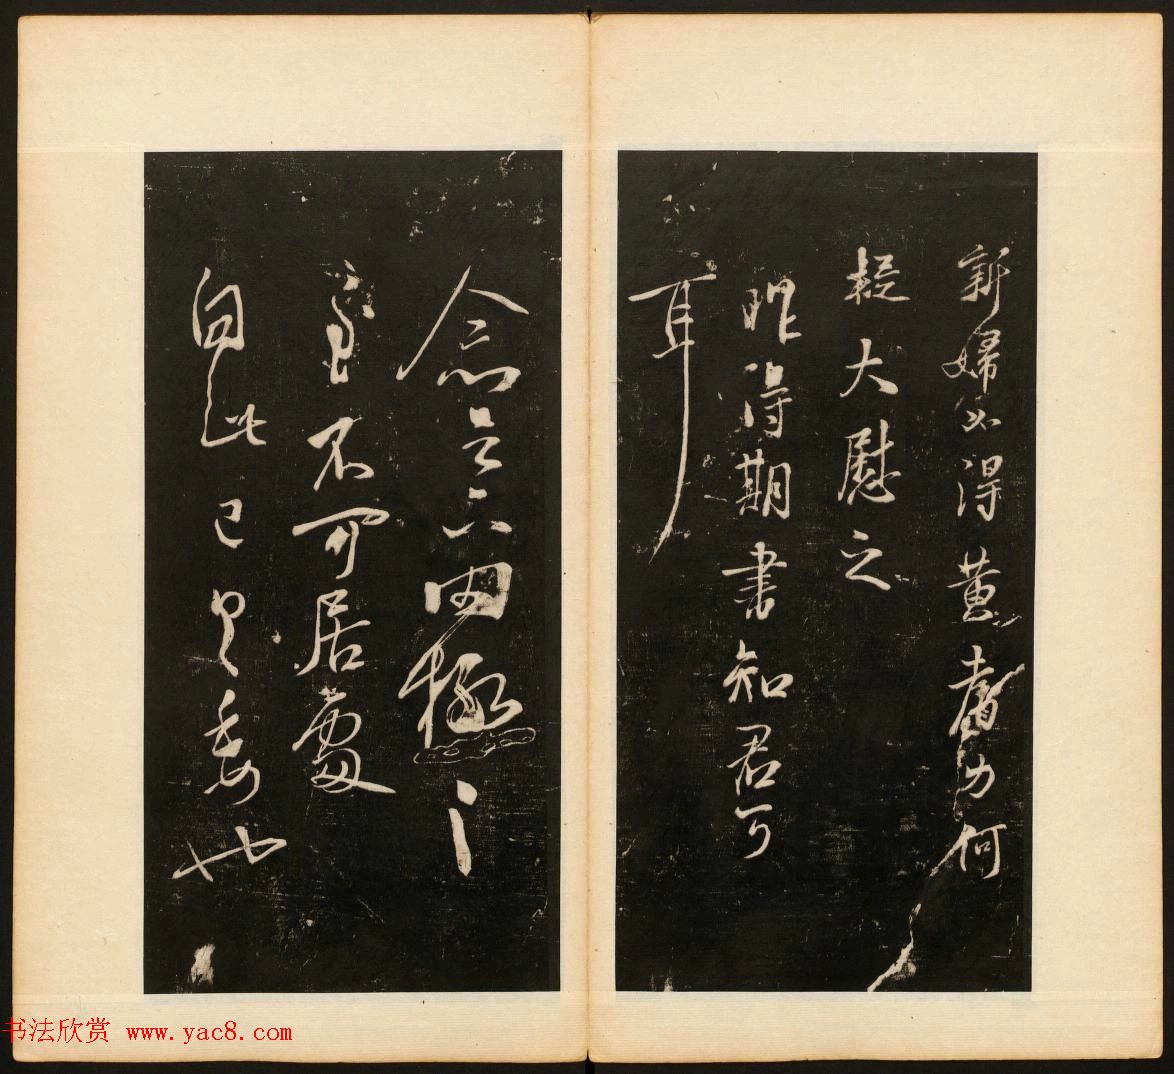 新婦必得黃耆力何
疑大慰之
昨得期書知君可
耳
念足下
不可居處
自此已具委也
书法欣赏 www.yac8.com